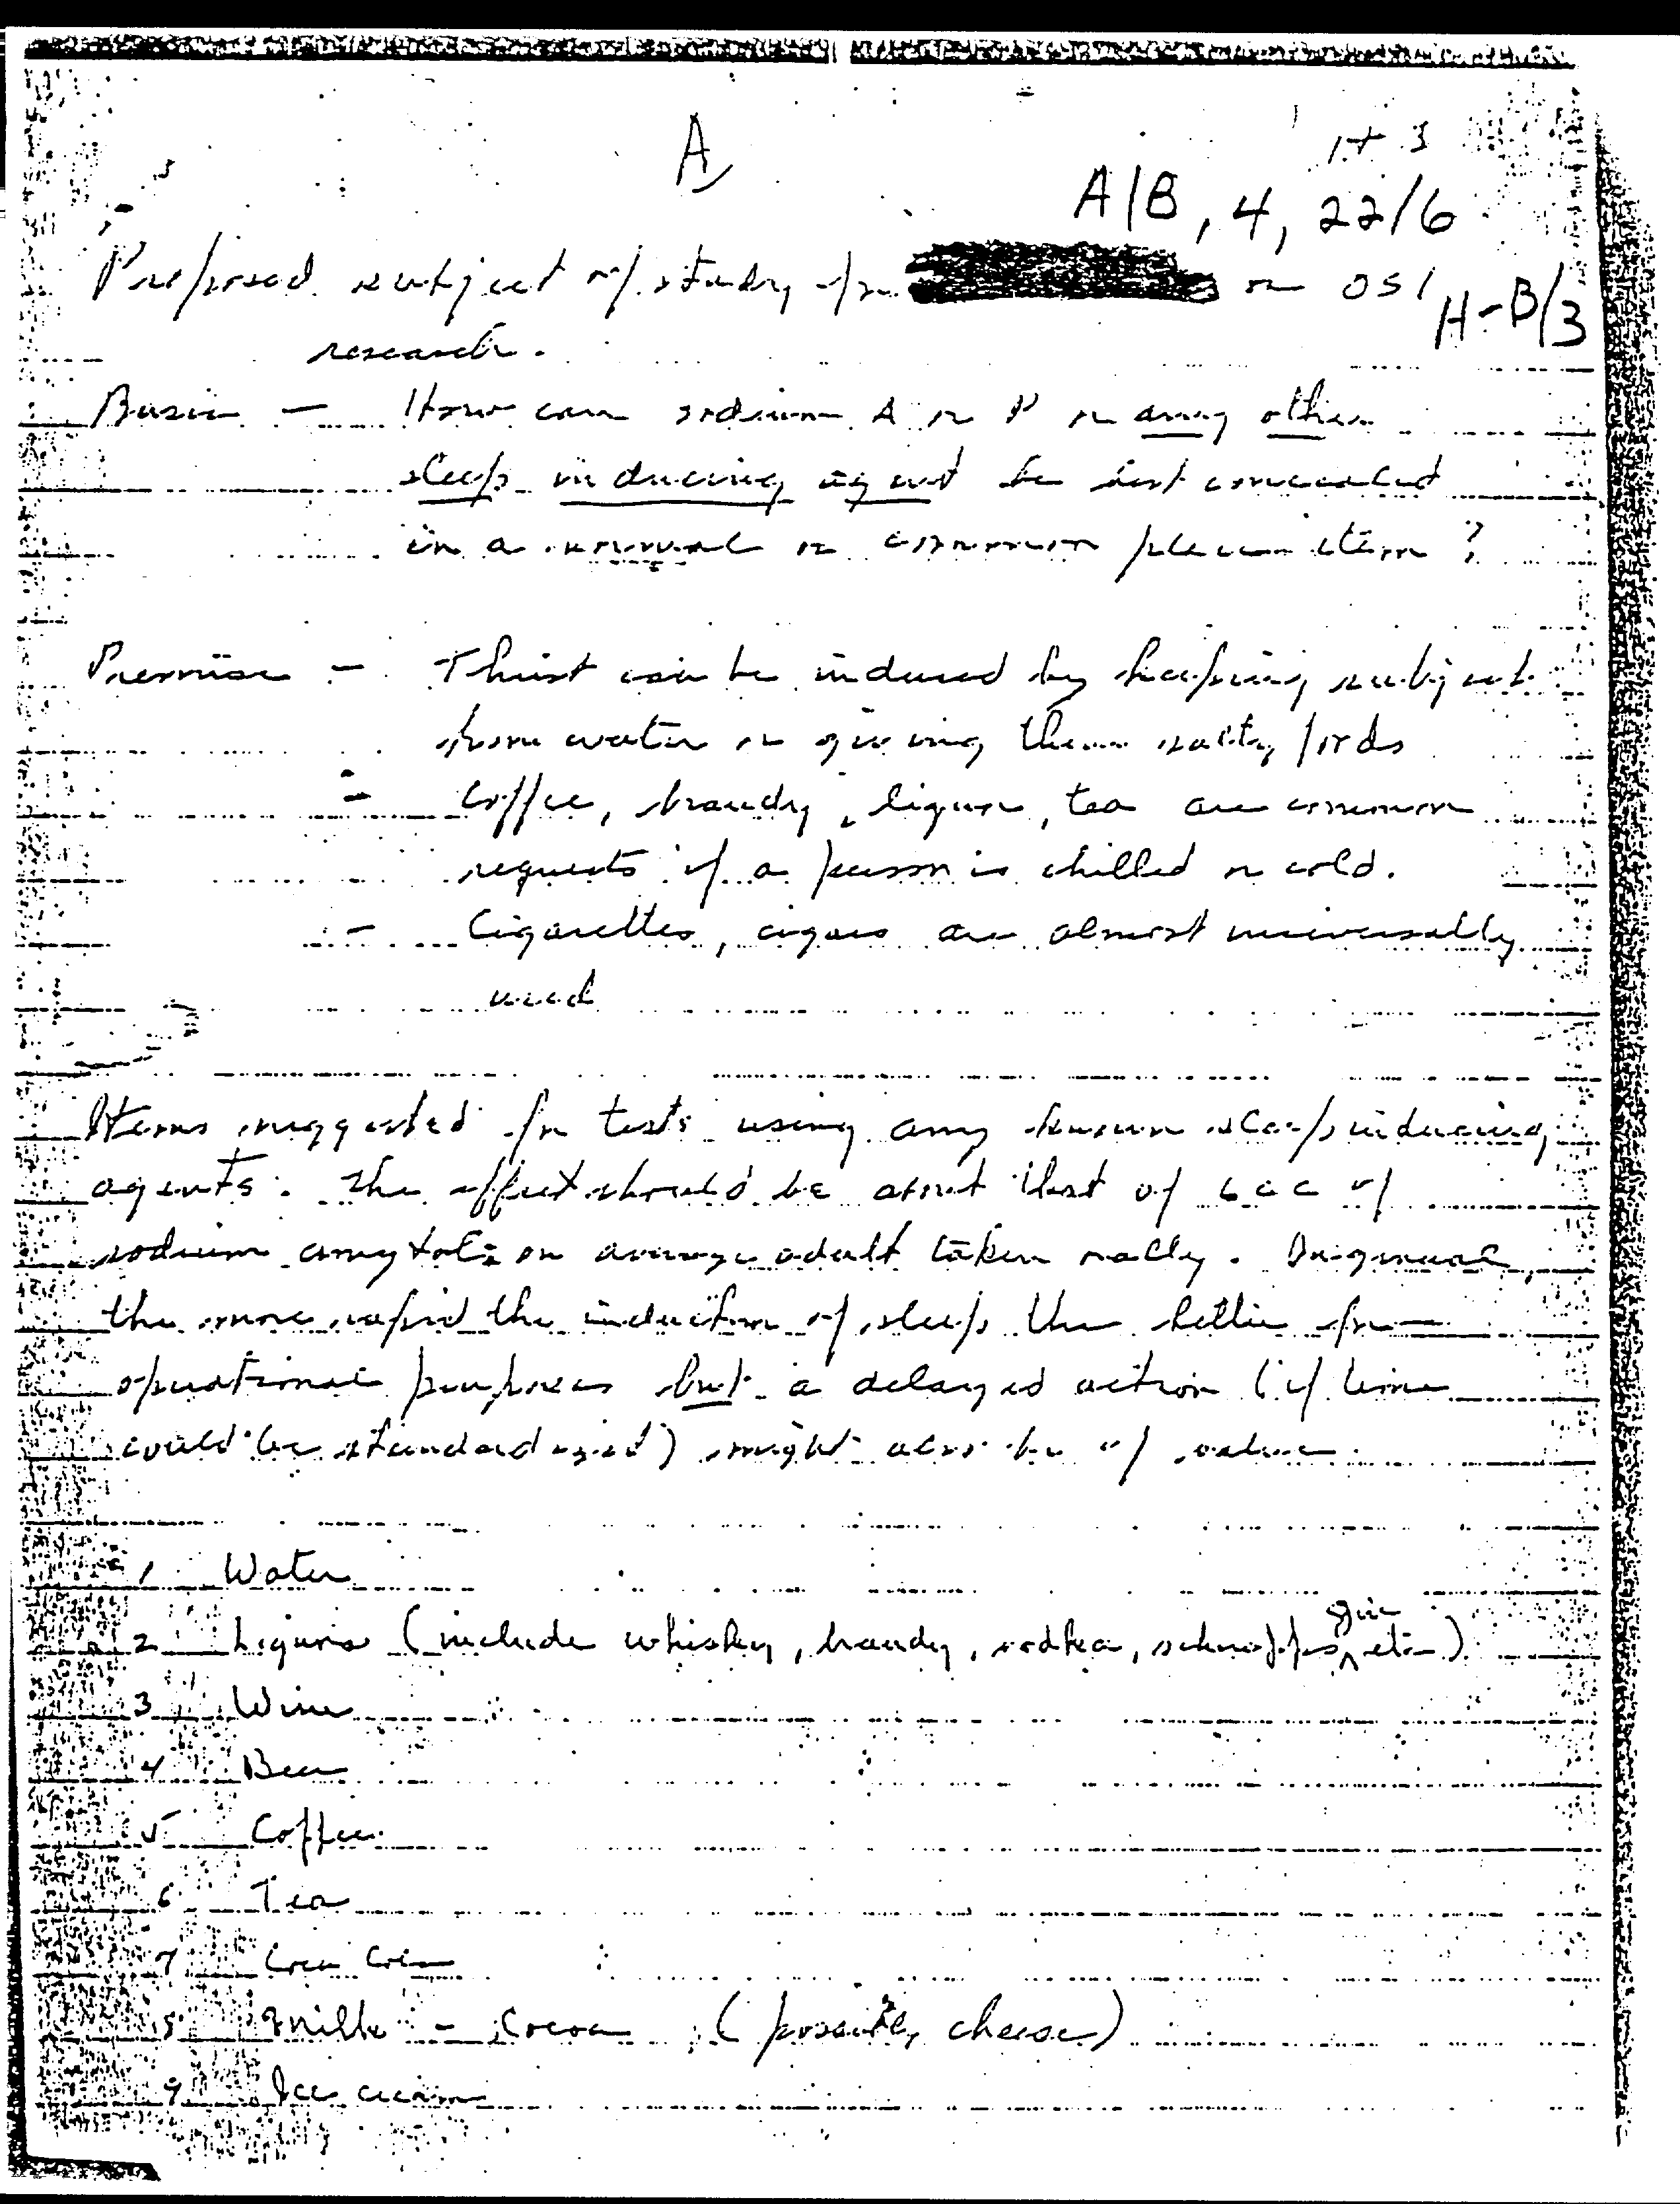 A
1 + 3
A/B, 4, 22/6
Proposed subject of study for or OSI
H-B/3
research.
Basic - How can sodium A or P or any other
sleep inducing agent be best concealed
in a normal or common place item?
Premise - Thirst can be induced by keeping subject
from water or giving them salty foods
- Coffee, brandy, liquor, tea are common
requests if a person is chilled or cold.
- Cigarettes, cigars are almost universally
used
Items suggested for tests using any known sleep inducing
agents. The effect should be about that of 6 cc of
sodium amytol on average adult taken orally. In general,
the more rapid the induction of sleep the better for
operational purposes but a delayed action (if time
could be standardized) might also be of value.
1 Water
2 Liquors (include whiskey, brandy, vodka, schnapps, gin etc)
3 Wine
4 Beer
5 Coffee
6 Tea
7 Coca Cola
8 Milk - Cocoa (possibly cheese)
9 Ice cream